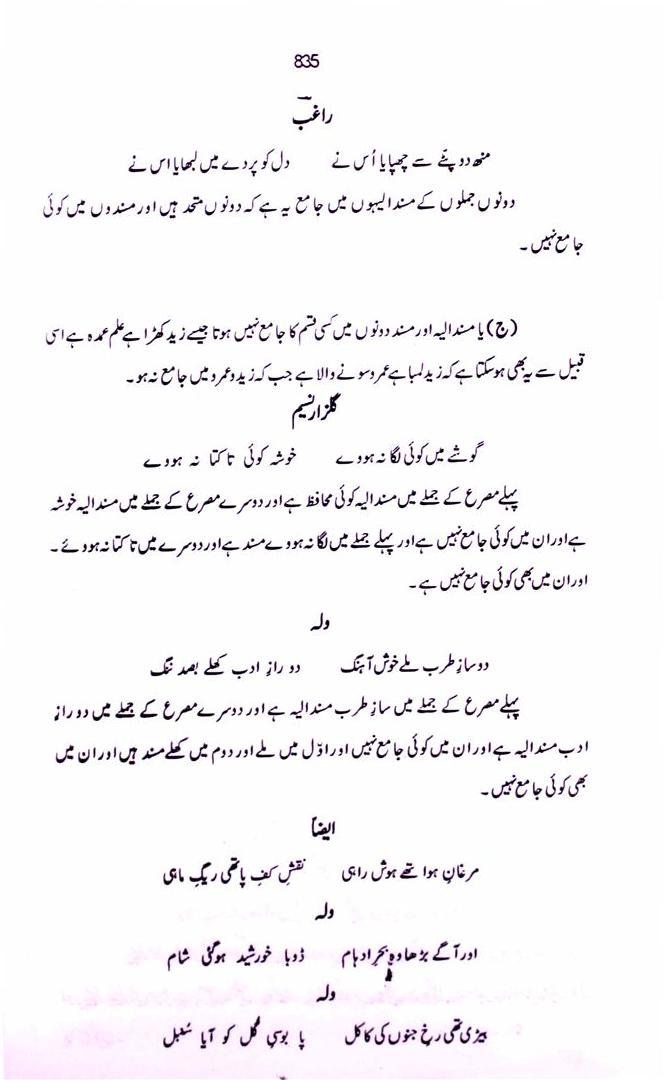 835
راغب
منھ دوپٹے سے چھپایا اُس نے دل کو پردے میں لبھایا اس نے
دونوں جملوں کے مسندالیہوں میں جامع یہ ہے کہ دونوں متحد ہیں اور مسندوں میں کوئی
جامع نہیں۔
(ج) یا مسندالیہ اور مسند دونوں میں کسی قسم کا جامع نہیں ہوتا جیسے زید کھڑا ہے علم عمدہ ہے اسی
قبیل سے یہ بھی ہوسکتا ہے کہ زید لمبا ہے عمرو سونے والا ہے جب کہ زید و عمرو میں جامع نہ ہو۔
گلزار نسیم
گوشے میں کوئی لگا نہ ہووے خوشہ کوئی تاکتا نہ ہووے
پہلے مصرع کے جملے میں مسندالیہ کوئی محافظ ہے اور دوسرے مصرع کے جملے میں مسندالیہ خوشہ
ہے اور ان میں کوئی جامع نہیں ہے اور پہلے جملے میں لگا نہ ہووے مسند ہے اور دوسرے میں تاکتا نہ ہووئے۔
اور ان میں بھی کوئی جامع نہیں ہے۔
ولہ
دو سازِ طرب ملے خوش آہنگ دو رازِ ادب کھلے بصد ننگ
پہلے مصرع کے جملے میں سازِ طرب مسندالیہ ہے اور دوسرے مصرع کے جملے میں دو رازِ
ادب مسندالیہ ہے اور ان میں کوئی جامع نہیں اور اوّل میں ملے اور دوم میں کھلے مسند ہیں اور ان میں
بھی کوئی جامع نہیں۔
ایضاً
مرغانِ ہوا تھے ہوش راہی نقشِ کفِ پا تھی ریگِ ماہی
ولہ
اور آگے بڑھا وہ بحرِ ادہام ڈوبا خورشید ہوگئی شام
ولہ
بیڑی تھی رخِ جنوں کی کاکل پا بوسیِ گل کو آیا سُنبل